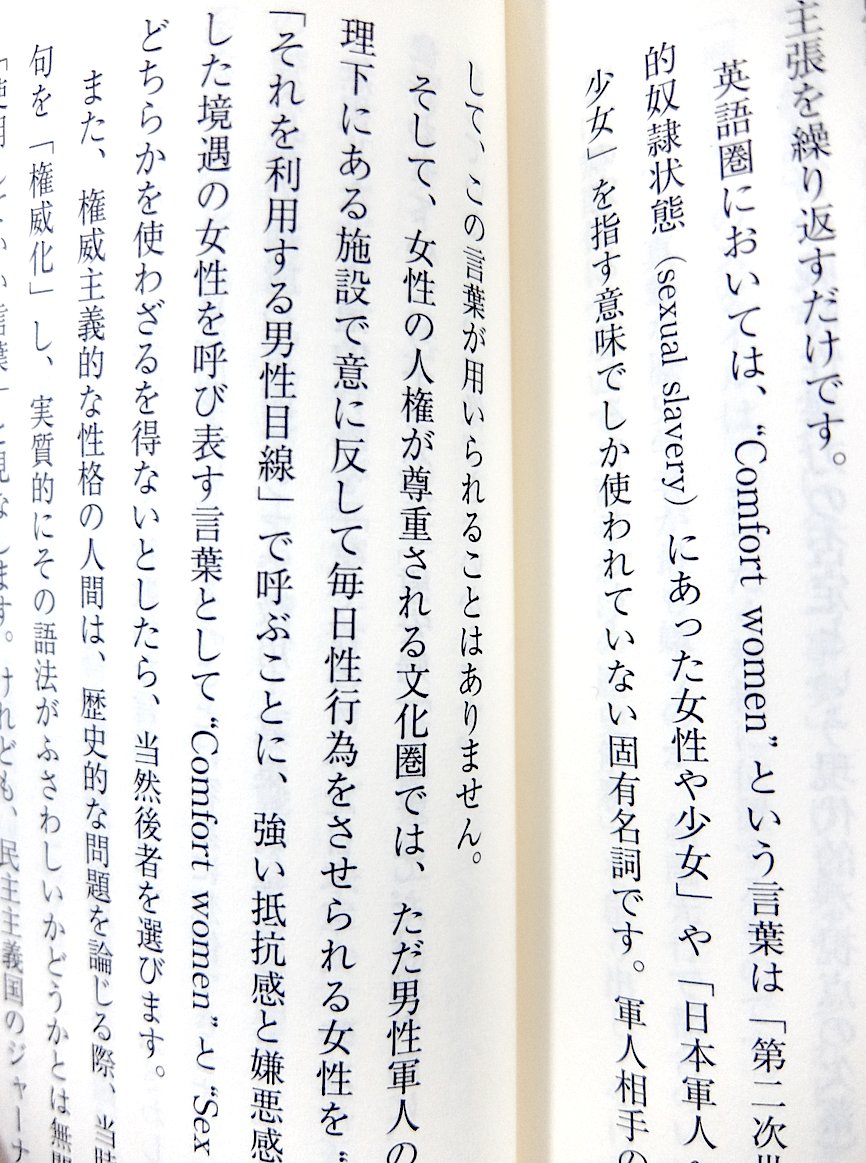 主張を繰り返すだけです。
英語圏においては、“Comfort women”という言葉は「第二次世
的奴隷状態（sexual slavery）にあった女性や少女」や「日本軍人
少女」を指す意味でしか使われていない固有名詞です。軍人相手の
して、この言葉が用いられることはありません。
そして、女性の人権が尊重される文化圏では、ただ男性軍人の
理下にある施設で意に反して毎日性行為をさせられる女性を“
「それを利用する男性目線」で呼ぶことに、強い抵抗感と嫌悪感
した境遇の女性を呼び表す言葉として“Comfort women”と“Sex
どちらかを使わざるを得ないとしたら、当然後者を選びます。
また、権威主義的な性格の人間は、歴史的な問題を論じる際、当時
句を「権威化」し、実質的にその語法がふさわしいかどうかとは無関
言葉」と見なします。けれども、民主主義国のジャーナ